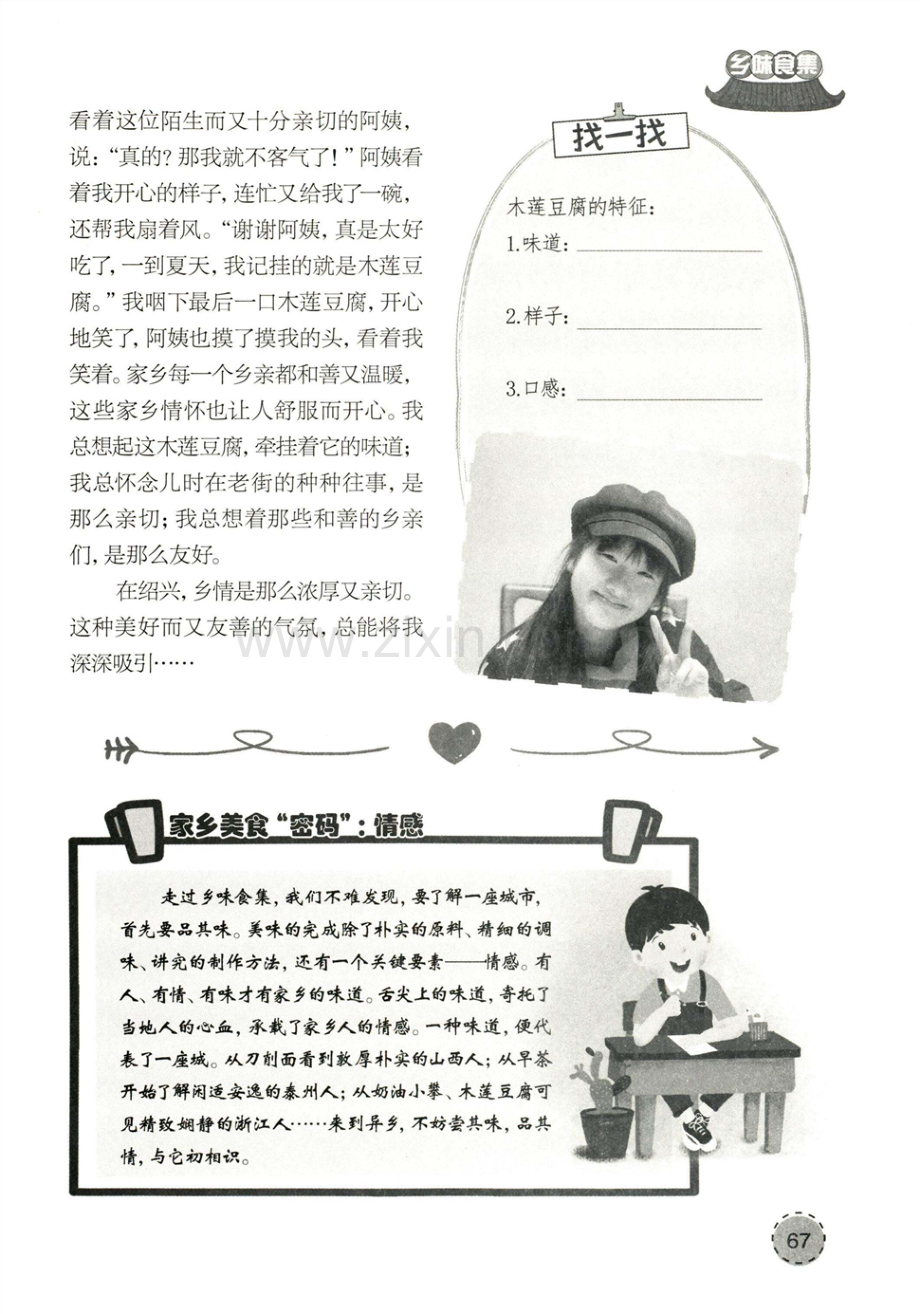 乡味食集
看着这位陌生而又十分亲切的阿姨，
说：“真的？那我就不客气了！”阿姨看
着我开心的样子，连忙又给我了一碗，
还帮我扇着风。“谢谢阿姨，真是太好
吃了，一到夏天，我记挂的就是木莲豆
腐。”我咽下最后一口木莲豆腐，开心
地笑了，阿姨也摸了摸我的头，看着我
笑着。家乡每一个乡亲都和善又温暖，
这些家乡情怀也让人舒服而开心。我
总想起这木莲豆腐，牵挂着它的味道；
我总怀念儿时在老街的种种往事，是
那么亲切；我总想着那些和善的乡亲
们，是那么友好。
在绍兴，乡情是那么浓厚又亲切。
这种美好而又友善的气氛，总能将我
深深吸引……
找一找
木莲豆腐的特征：
1.味道：
2.样子：
3.口感：
www.zixin.com.cn
家乡美食“密码”：情感
走过乡味食集，我们不难发现，要了解一座城市，
首先要品其味。美味的完成除了朴实的原料、精细的调
味、讲究的制作方法，还有一个关键要素——情感。有
人、有情、有味才有家乡的味道。舌尖上的味道，寄托了
当地人的心血，承载了家乡人的情感。一种味道，便代
表了一座城。从刀削面看到敦厚朴实的山西人；从早茶
开始了解闲适安逸的泰州人；从奶油小攀、木莲豆腐可
见精致娴静的浙江人……来到异乡，不妨尝其味，品其
情，与它初相识。
67